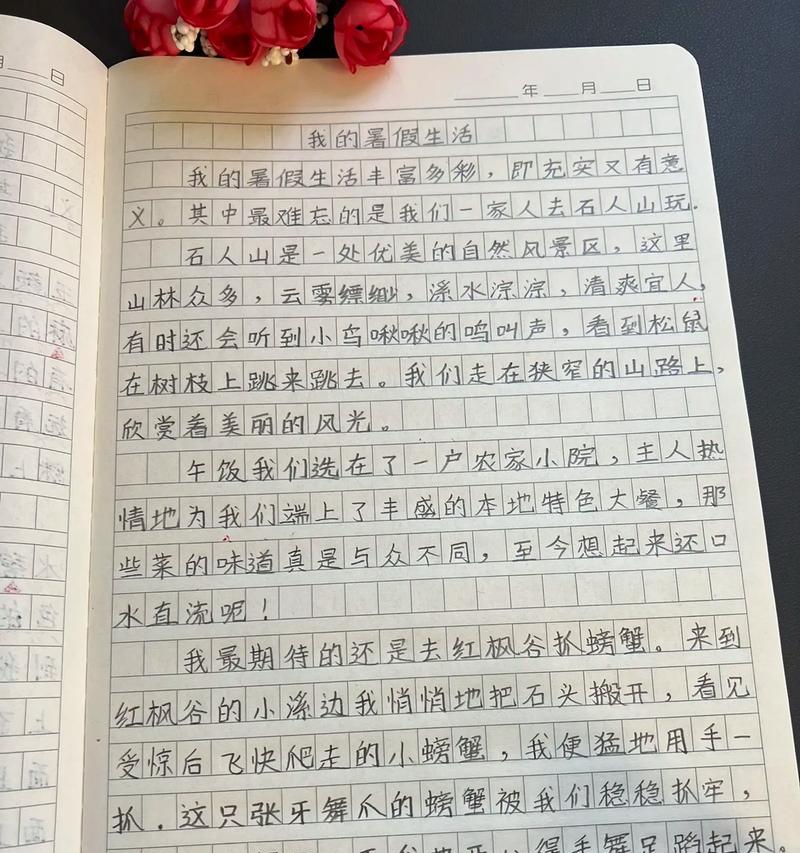 月 日
年 月 日
我的暑假生活
我的暑假生活丰富多彩，即充实又有意
义。其中最难忘的是我们一家人去石人山玩.
石人山是一处优美的自然风景区，这里
山林众多，云雾缥缈，溪水淙淙，清爽宜人，
有时还会听到小鸟啾啾的鸣叫声，看到松鼠
在树枝上跳来跳去。我们走在狭窄的山路上，
欣赏着美丽的风光。
午饭我们选在了一户农家小院，主人热
情地为我们端上了丰盛的本地特色大餐，那
些菜的味道真是与众不同，至今想起来还口
水直流呢！
我最期待的还是去红枫谷抓螃蟹。来到
红枫谷的小溪边我悄悄地把石头搬开，看见
受惊后飞快爬走的小螃蟹，我便猛地用手一
抓．这只张牙舞爪的螃蟹被我们稳稳抓牢，
得手舞足蹈起来。